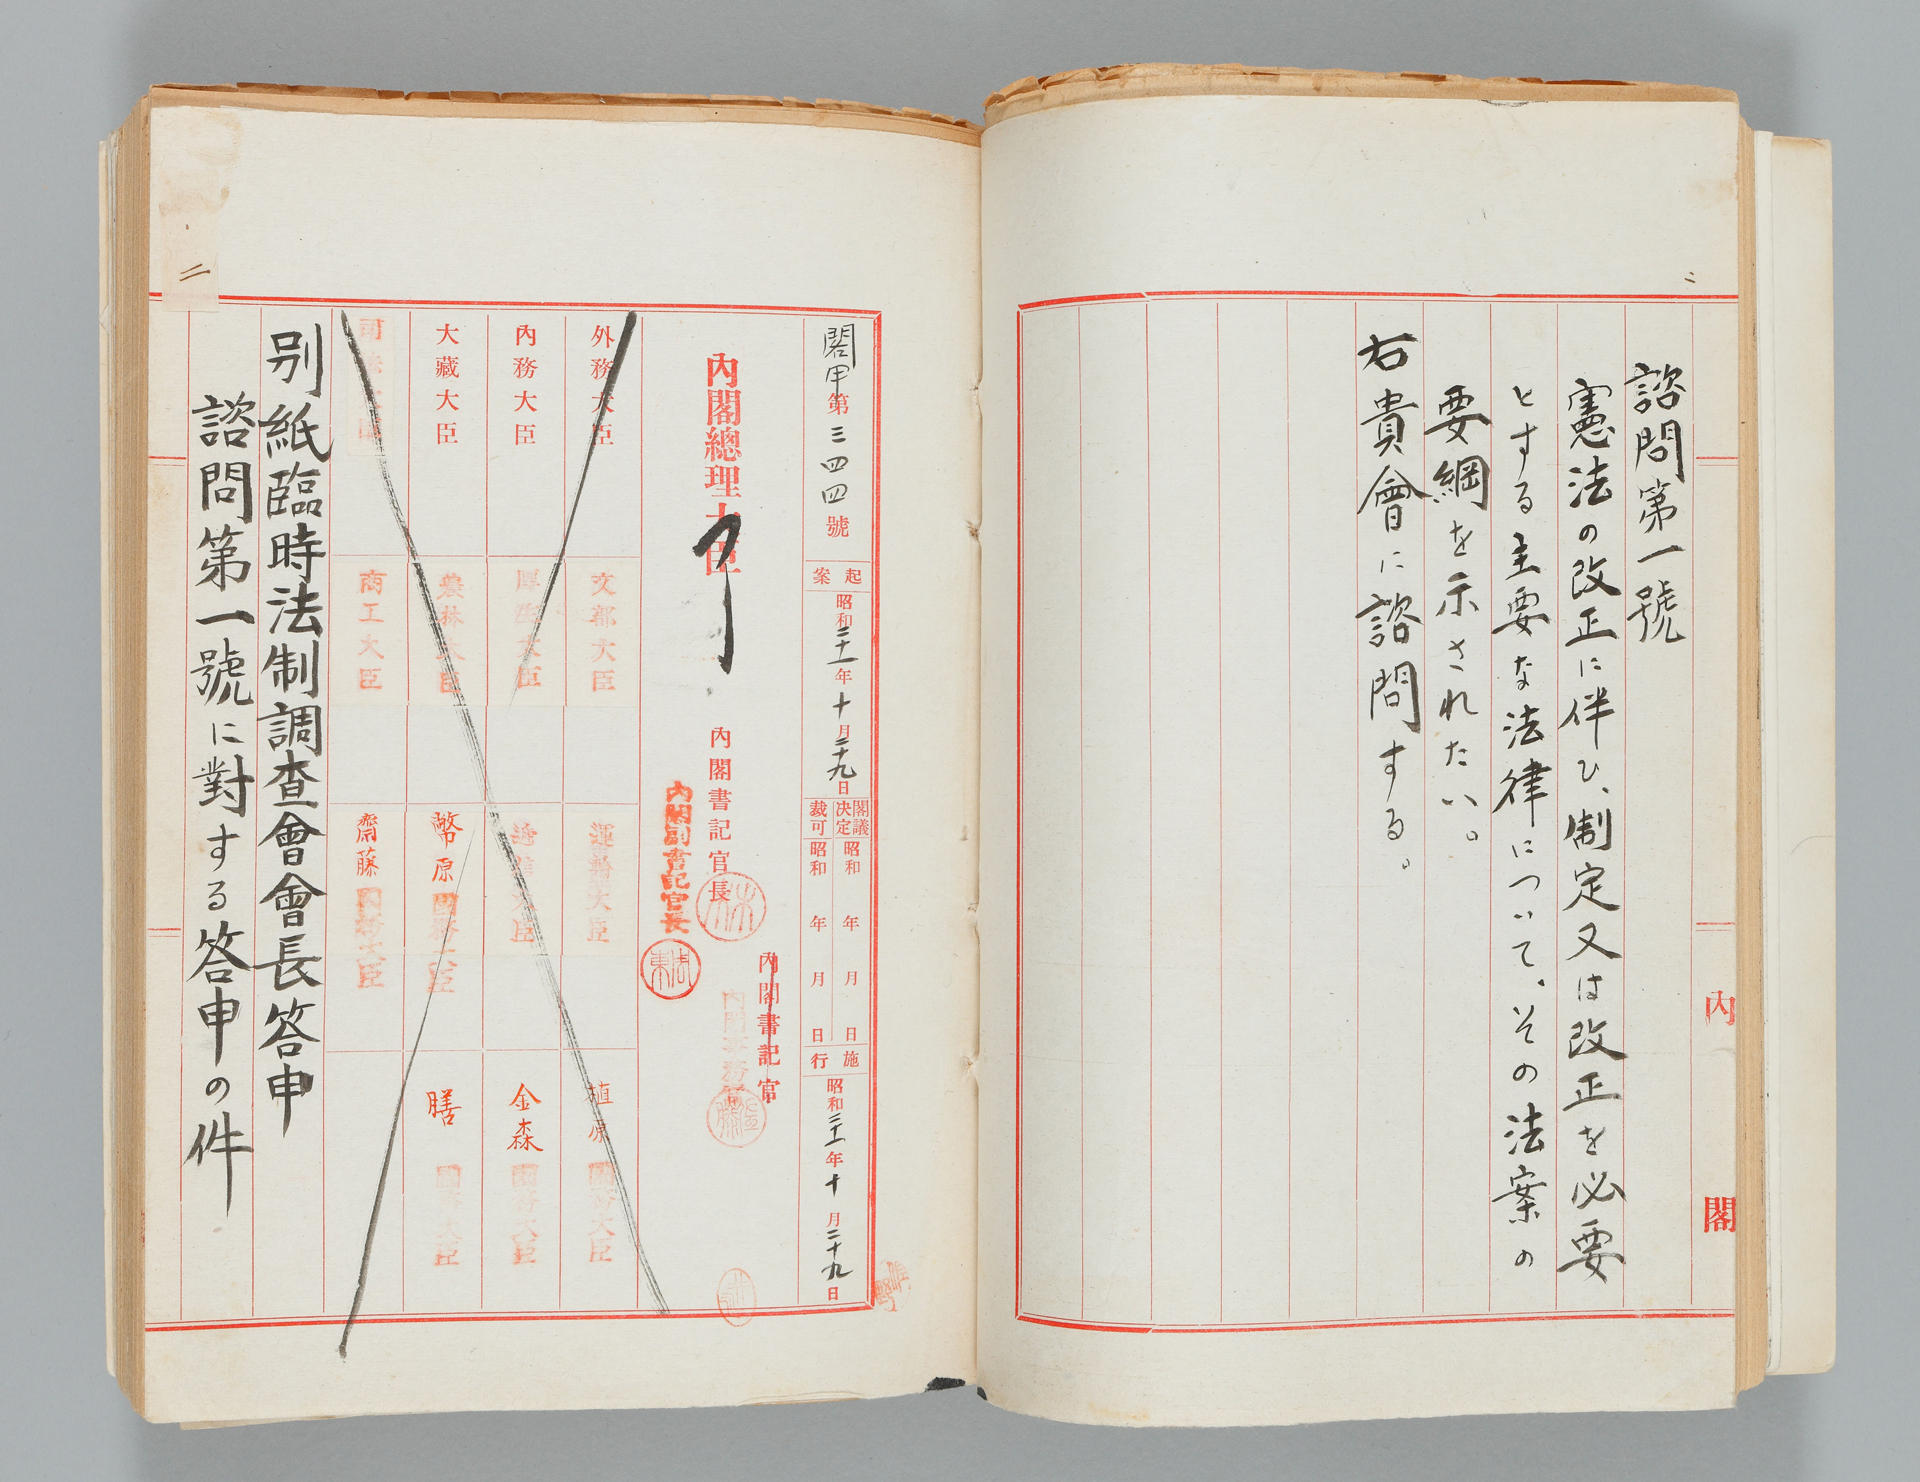 諮問第一號
憲法の改正に伴ひ、制定又は改正を必要
とする主要な法律について、その法案の
要綱を示されたい。
右貴會に諮問する。
內閣
閣甲第三四四號
起案 昭和二十一年十月二十九日
閣議決定 昭和 年 月 日
裁可 昭和 年 月 日
施行 昭和二十一年十月二十九日
內閣總理大臣
內閣書記官長
內閣副書記官長
內閣書記官
內閣事務官
外務大臣
文部大臣
運輸大臣
植原國務大臣
內務大臣
厚生大臣
遞信大臣
金森國務大臣
大藏大臣
農林大臣
幣原國務大臣
膳國務大臣
司法大臣
商工大臣
齋藤國務大臣
別紙臨時法制調査會會長答申
諮問第一號に對する答申の件
二